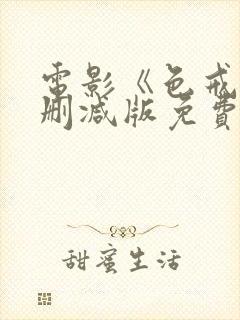 電影《色戒
刪減版免費
甜蜜生活